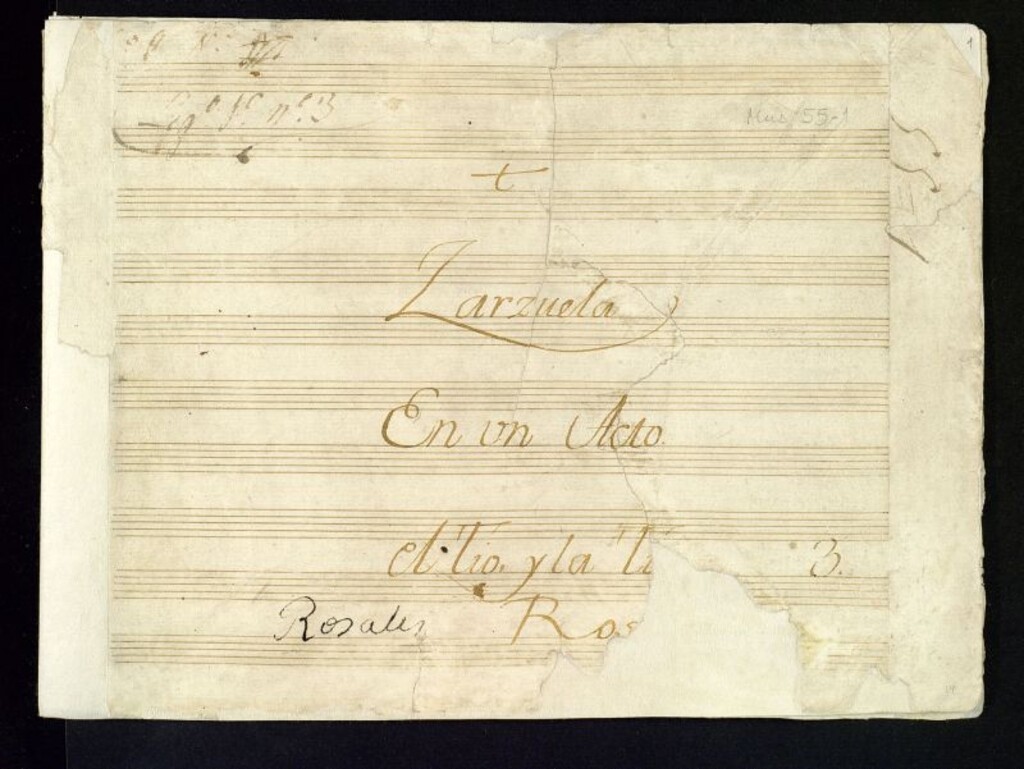 1
Leg.º 1.º n.º 3
Mus 55-1
+
Zarzuela
En un Acto.
el Tio. y la Ti
3.
Rosales Ros